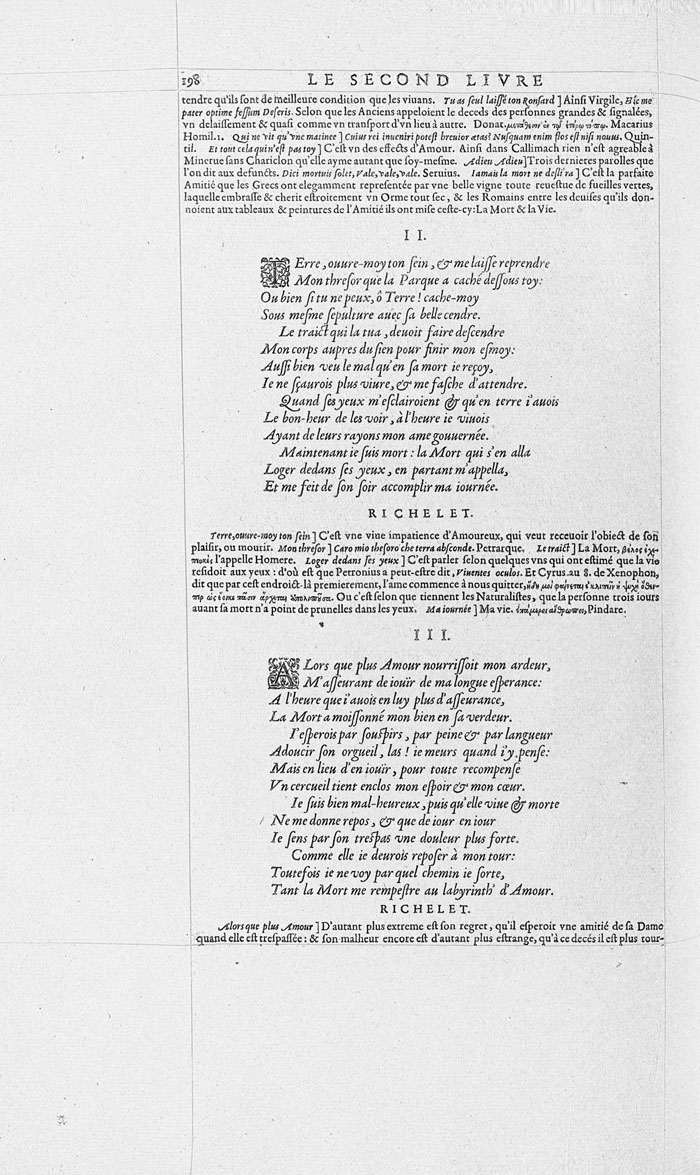 198 LE SECOND LIVRE
tendre qu'ils sont de meilleure condition que les viuans. Tu as seul laissé ton Ronsard ] Ainsi Virgile, Hîc me
pater optime fessum Deseris. Selon que les Anciens appeloient le deceds des personnes grandes & signalées,
vn delaissement & quasi comme vn transport d'vn lieu à autre. Donat. Macarius
Homil. 1. Qui ne vit qu'vne matinee ] Cuius rei inueniri potest breuior ætas? Nusquam enim flos est nisi nouus. Quin-
til. Et tout cela qui n'est pas toy ] C'est vn des effects d'Amour. Ainsi dans Callimach rien n'est agreable à
Minerue sans Chariclon qu'elle ayme autant que soy-mesme. Adieu Adieu ] Trois dernieres parolles que
l'on dit aux defuncts. Dici mortuis solet, Vale, vale, vale. Seruius. Iamais la mort ne desli'ra ] C'est la parfaite
Amitié que les Grecs ont elegamment representée par vne belle vigne toute reuestue de fueilles vertes,
laquelle embrasse & cherit estroitement vn Orme tout sec, & les Romains entre les deuises qu'ils don-
noient aux tableaux & peintures de l'Amitié ils ont mise ceste-cy: La Mort & la Vie.
II.
TErre, ouure-moy ton sein, & me laisse reprendre
Mon thresor que la Parque a caché dessous toy:
Ou bien si tu ne peux, ô Terre! cache-moy
Sous mesme sepulture auec sa belle cendre.
Le traict qui la tua, deuoit faire descendre
Mon corps aupres du sien pour finir mon esmoy:
Aussi bien veu le mal qu'en sa mort ie reçoy,
Ie ne sçaurois plus viure, & me fasche d'attendre.
Quand ses yeux m'esclairoient & qu'en terre i'auois
Le bon-heur de les voir, à l'heure ie viuois
Ayant de leurs rayons mon ame gouuernée.
Maintenant ie suis mort: la Mort qui s'en alla
Loger dedans ses yeux, en partant m'appella,
Et me feit de son soir accomplir ma iournée.
RICHELET.
Terre, ouure-moy ton sein ] C'est vne viue impatience d'Amoureux, qui veut receuoir l'obiect de son
plaisir, ou mourir. Mon thresor ] Caro mio thesoro che terra absconde. Petrarque. Le traict ] La Mort,
l'appelle Homere. Loger dedans ses yeux ] C'est parler selon quelques vns qui ont estimé que la vie
residoit aux yeux: d'où est que Petronius a peut-estre dit, Viuentes oculos. Et Cyrus au 8. de Xenophon,
dit que par cest endroict-là premierement, l'ame commence à nous quitter,
Ou c'est selon que tiennent les Naturalistes, que la personne trois iours
auant sa mort n'a point de prunelles dans les yeux. Ma iournée ] Ma vie. Pindare.
III.
ALors que plus Amour nourrissoit mon ardeur,
M'asseurant de iouïr de ma longue esperance:
A l'heure que i'auois en luy plus d'asseurance,
La Mort a moissonné mon bien en sa verdeur.
I'esperois par souspirs, par peine & par langueur
Adoucir son orgueil, las! ie meurs quand i'y pense:
Mais en lieu d'en iouïr, pour toute recompense
Vn cercueil tient enclos mon espoir & mon cœur.
Ie suis bien mal-heureux, puis qu'elle viue & morte
Ne me donne repos, & que de iour en iour
Ie sens par son trespas vne douleur plus forte.
Comme elle ie deurois reposer à mon tour:
Toutefois ie ne voy par quel chemin ie sorte,
Tant la Mort me rempestre au labyrinth' d'Amour.
RICHELET.
Alors que plus Amour ] D'autant plus extreme est son regret, qu'il esperoit vne amitié de sa Dame
quand elle est trespassée: & son malheur encore est d'autant plus estrange, qu'à ce decés il est plus tour-